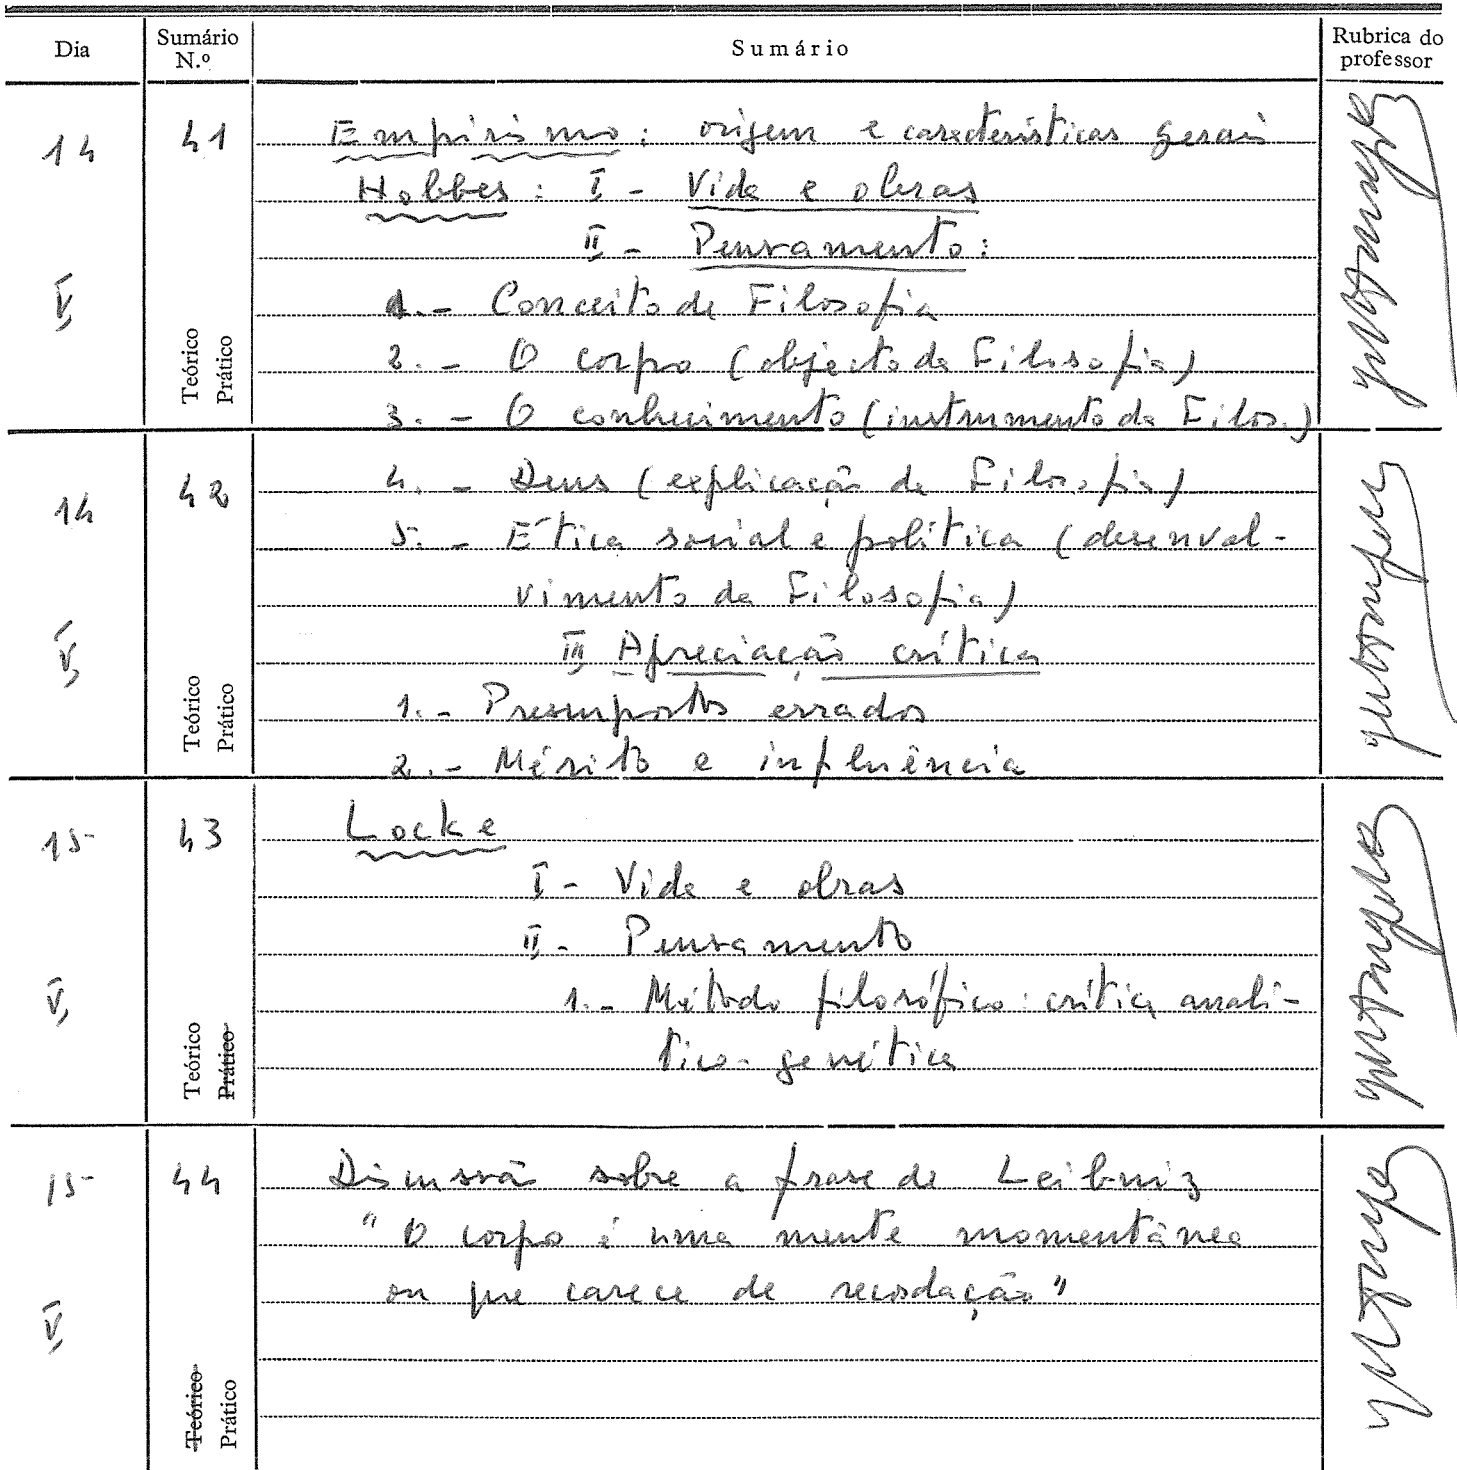 Dia Sumário N.º Sumário Rubrica do professor
14 41 Empirismo: origem e características gerais
Hobbes: I - Vida e obras
II - Pensamento:
V 1. - Conceito de Filosofia
2. - O corpo (objecto da Filosofia)
3. - O conhecimento (instrumento da Filos.)
Teórico
Prático
14 42 4. - Deus (explicação da Filosofia)
5. - Ética social e política (desenvol-
vimento da Filosofia)
V III Apreciação crítica
1. - Pressupostos errados
2. - Mérito e influência
Teórico
Prático
15 43 Locke
I - Vida e obras
II - Pensamento
V 1. - Método filosófico: crítica analí-
tico-genética
Teórico
Prático
15 44 Discussão sobre a frase de Leibniz
"O corpo é uma mente momentânea
V ou que carece de recordação"
Teórico
Prático